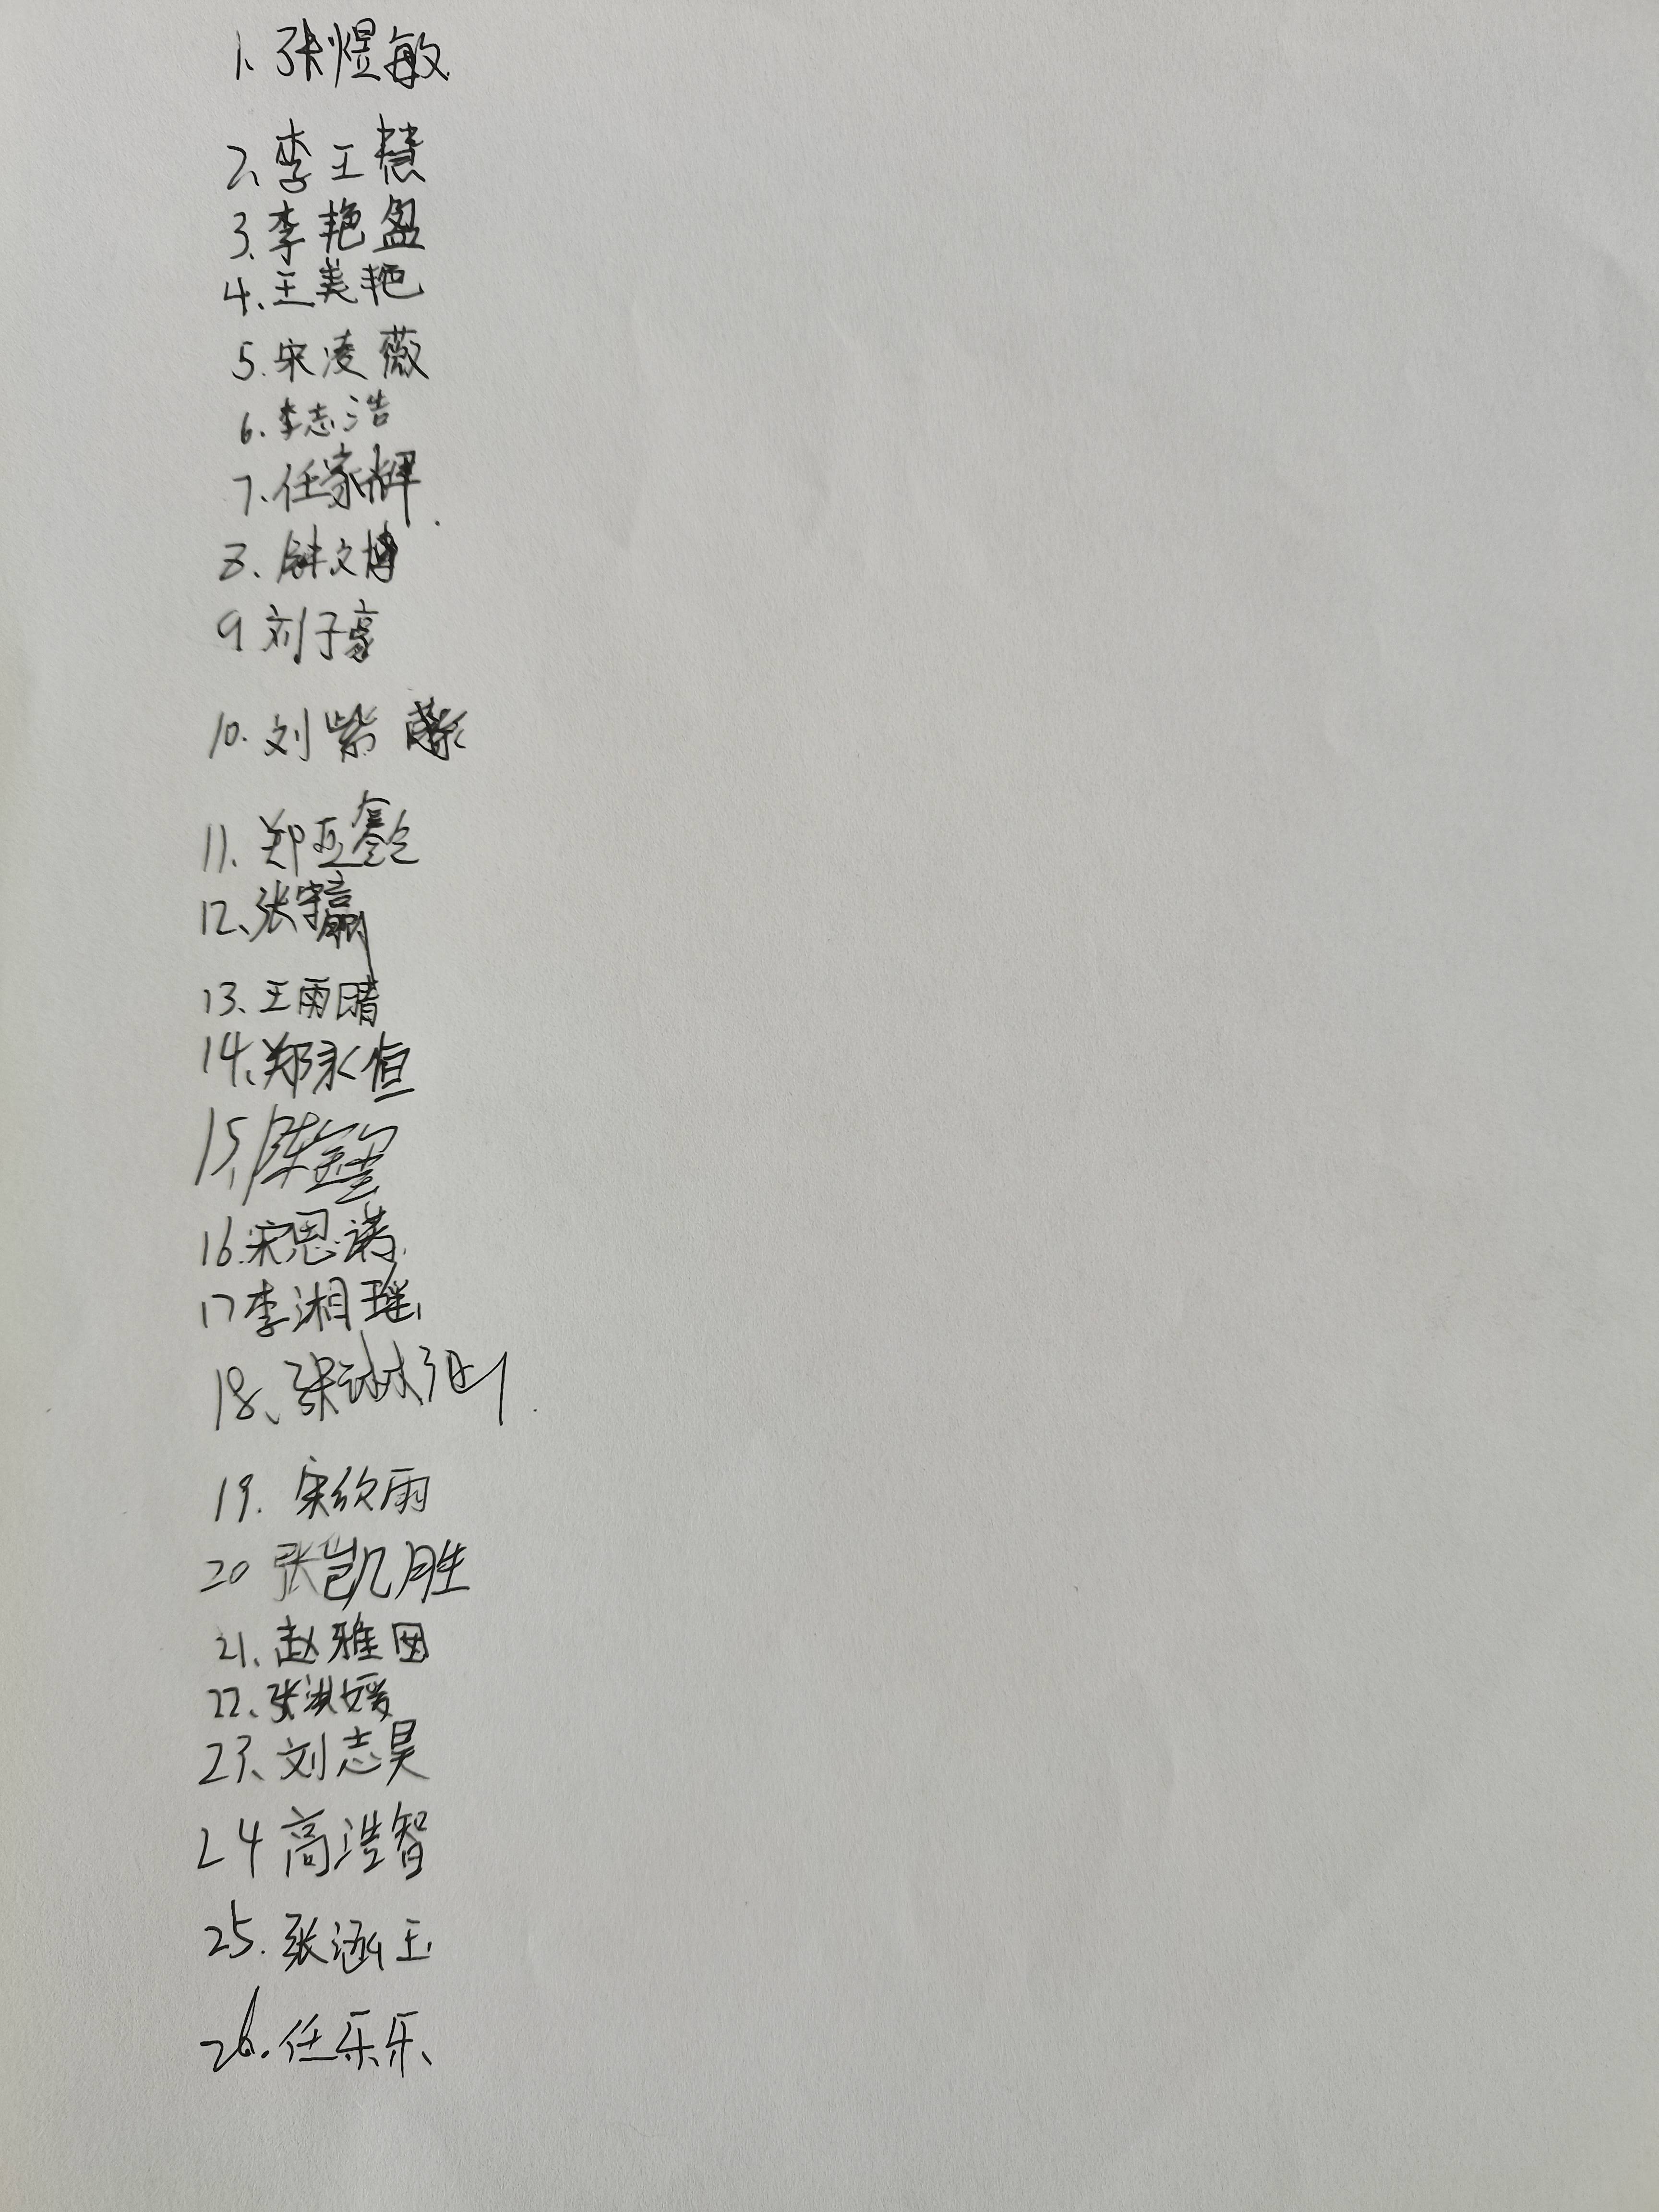 1、张煜敏
2、李王慧
3、李艳盈
4、王美艳
5.宋凌薇
6.李志浩
7、任家辉
8、文博
9 刘子豪
10.刘紫
11、郑亚鑫
12、张宇赢
13、王雨晴
14、郑永恒
15、陈
16.宋思诺
17 李湘瑶
18、张
19.宋欣雨
20 张凯胜
21、赵雅囡
22、张洪媛
23、刘志昊
24 高浩智
25.张涵玉
26.任乐乐